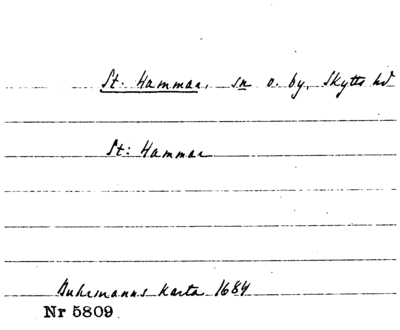 St. Hammar, sn o. by, Skytts hd
St: Hammar
Buhrmanns karta 1684
Nr 5809